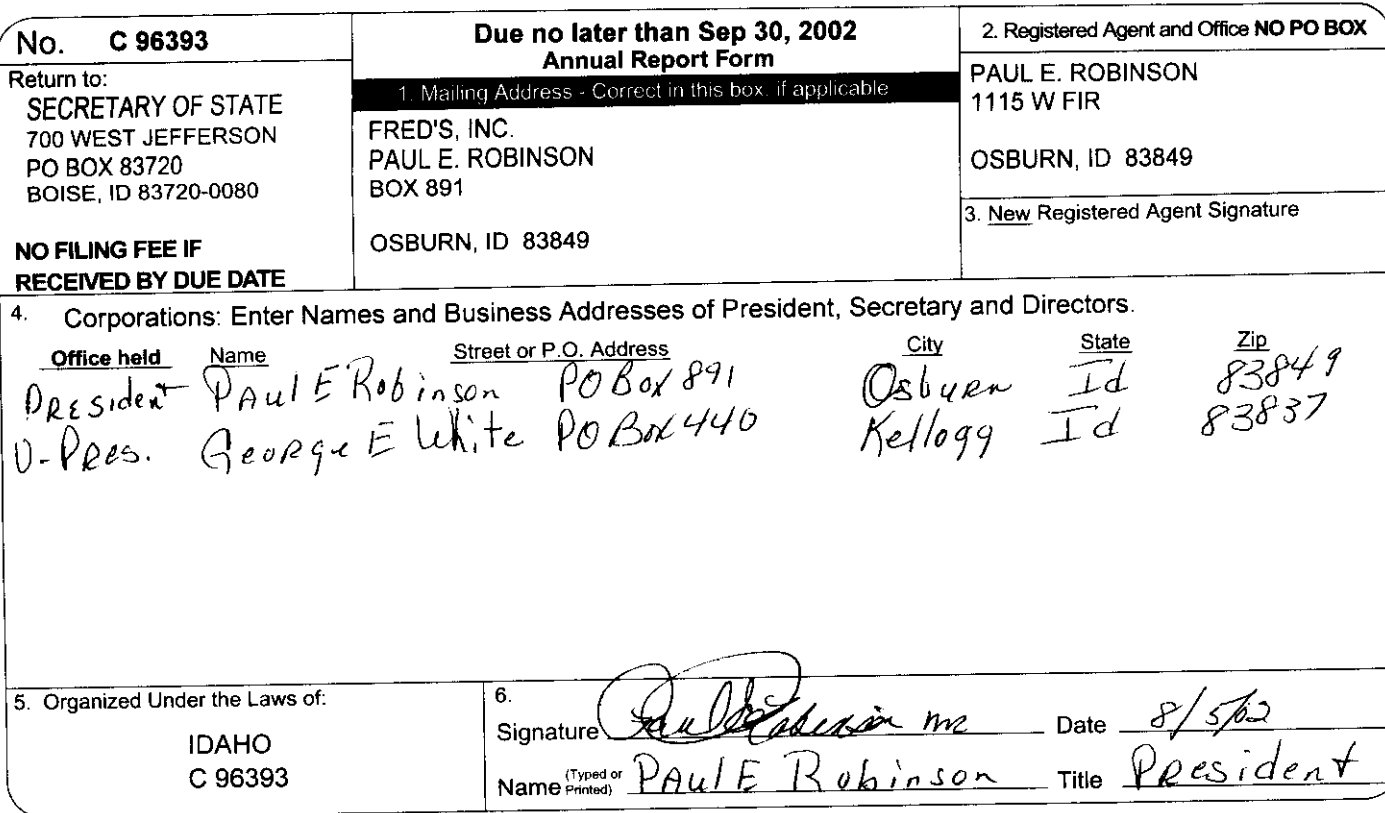 No. C 96393
Return to:
SECRETARY OF STATE
700 WEST JEFFERSON
PO BOX 83720
BOISE, ID 83720-0080
NO FILING FEE IF
RECEIVED BY DUE DATE
Due no later than Sep 30, 2002
Annual Report Form
1. Mailing Address - Correct in this box, if applicable
FRED'S, INC.
PAUL E. ROBINSON
BOX 891
OSBURN, ID 83849
2. Registered Agent and Office NO PO BOX
PAUL E. ROBINSON
1115 W FIR
OSBURN, ID 83849
3. New Registered Agent Signature
4. Corporations: Enter Names and Business Addresses of President, Secretary and Directors.
Office held Name Street or P.O. Address City State Zip
President Paul E Robinson PO Box 891 Osburn Id 83849
V-Pres. George E White PO Box 440 Kellogg Id 83837
5. Organized Under the Laws of:
IDAHO
C 96393
6.
Signature Paul E Robinson Date 8/5/02
Name (Typed or Printed) Paul E Robinson Title President